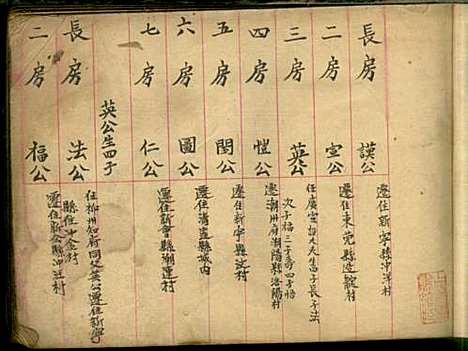 長房 謨公
遷住新寧縣沖洋村
二房 宣公
遷住東莞縣
三房 英公
任廣宣議大夫生四子長子法
次子福三子壽四子梧
四房 愷公
遷潮州府潮陽縣洛陽村
五房 閏公
遷住新寧縣
六房 圖公
遷住清遠縣城內
七房 仁公
遷住新會縣潮蓮村
英公生四子
長房 法公
任柳州知府同父英公遷住新寧
縣住沖金村
二房 福公
遷住新會縣沖